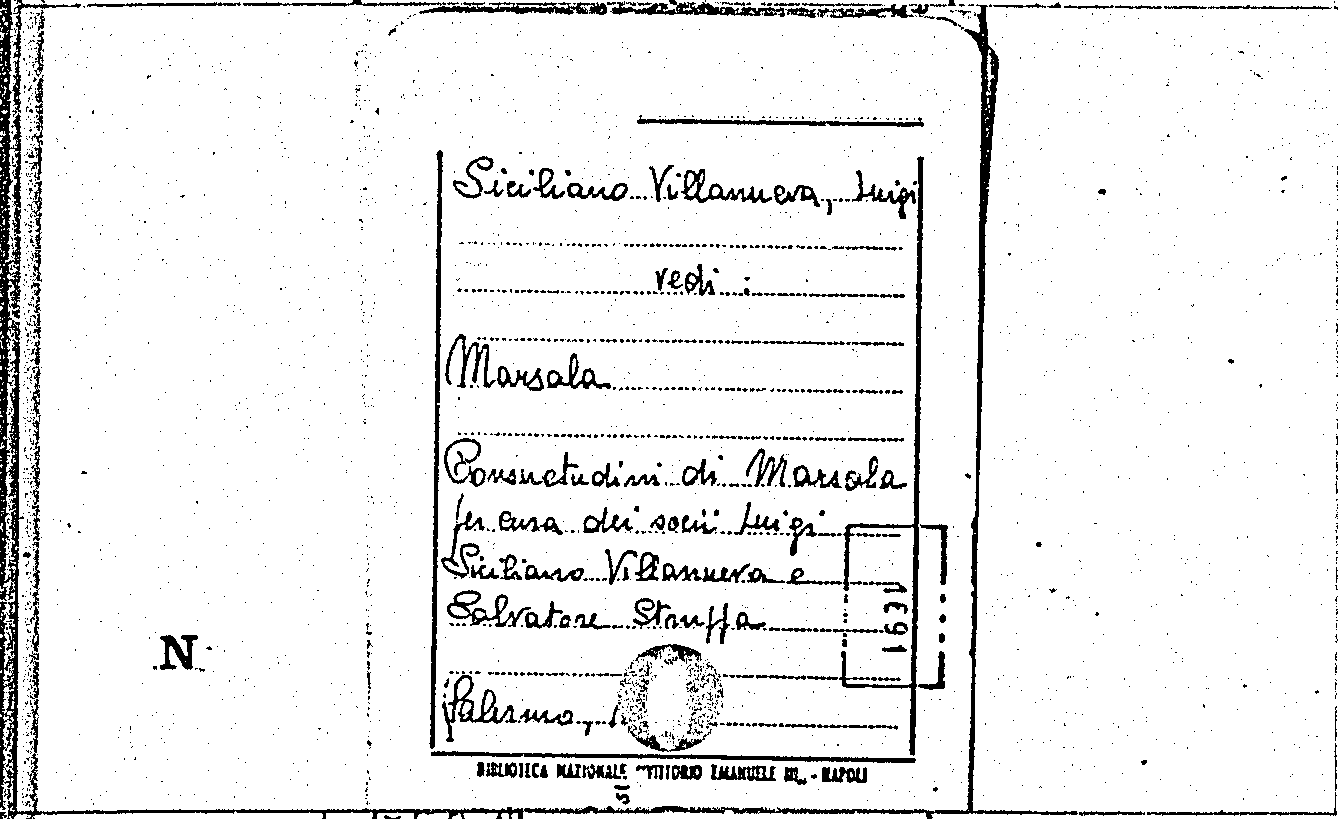 Siciliano Villanueva, Luigi
vedi :
Marsala
Consuetudini di Marsala
per cura dei socii Luigi
Siciliano Villanueva e
Salvatore Struffa
Palermo,
1691
N
BIBLIOTECA NAZIONALE "VITTORIO EMANUELE III" - NAPOLI